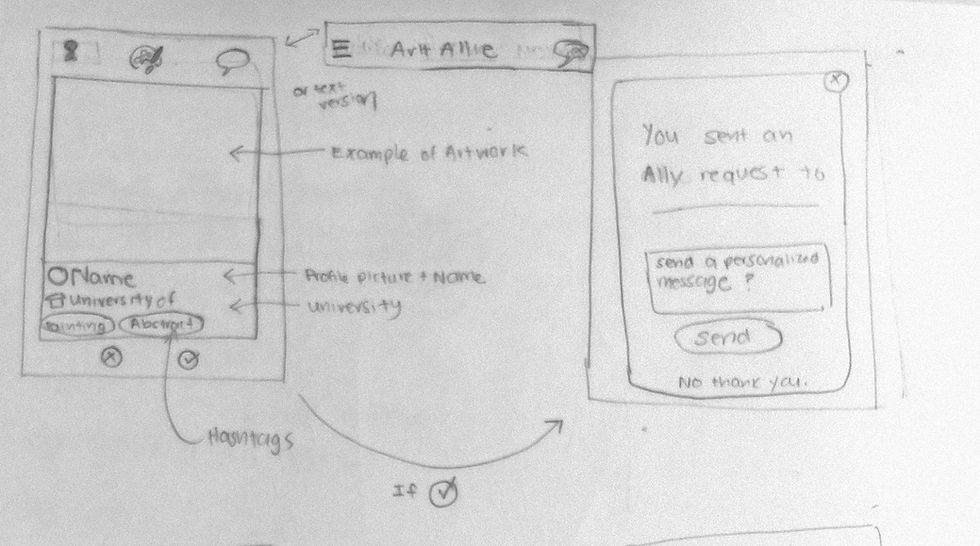 Art Allie
or text
version
Example of Artwork
Name
University of
Painting
Abstract
Profile picture + Name
University
Hashtags
If
You sent an
Ally request to
send a personalized
message ?
Send
No thank you.